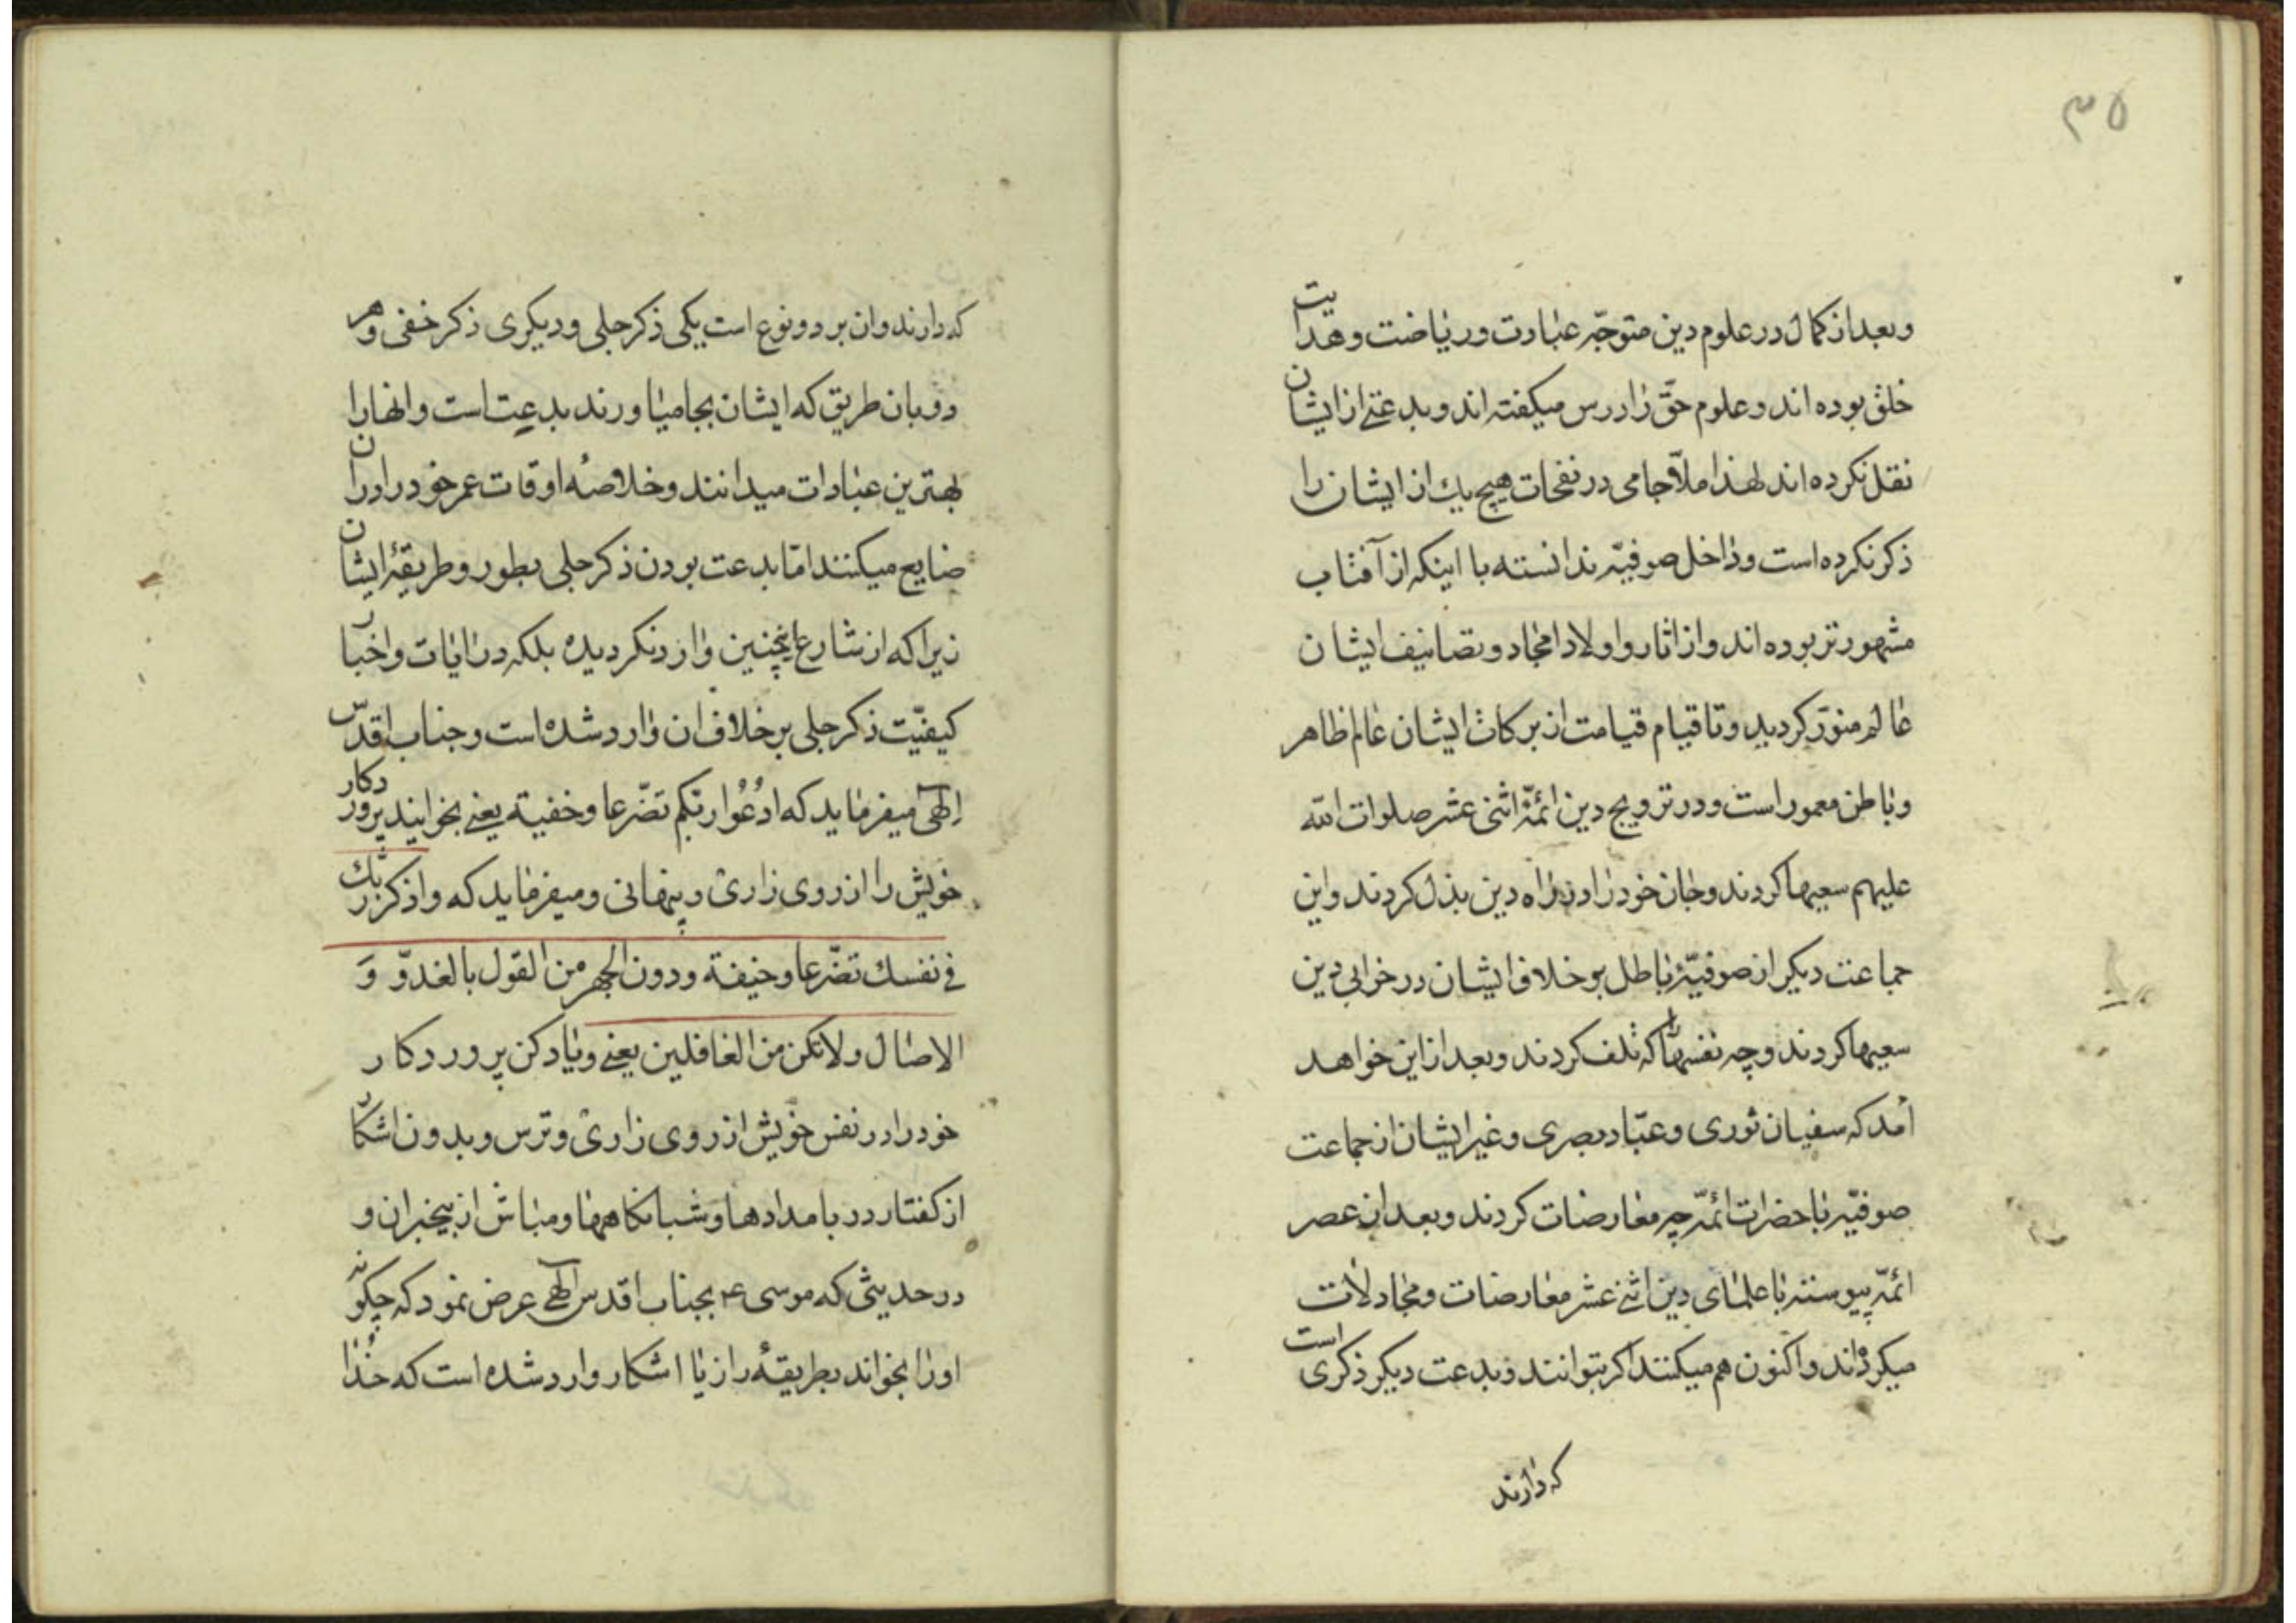 ۳۵
وبعد از کمال در علوم دین متوجّه عبادت و ریاضت و هدایت
خلق بوده اند و علوم حقّ را درس میکفته اند و بدعتی از ایشان
نقل نکرده اند لهذا ملّا جامی در نفحات هیچ یك از ایشان را
ذکر نکرده است و داخل صوفیّه ندانسته با اینکه از آفتاب
مشهور تر بوده اند و از اثار و اولاد امجاد و تصانیف ایشان
عالم منوّر کردید و تا قیام قیامت از برکات ایشان عالم ظاهر
و باطن معمور است و در ترویج دین ائمّهٔ اثنی عشر صلوات الله
علیهم سعیها کردند و جان خود را در راه دین بذل کردند و این
جماعت دیکر از صوفیّهٔ باطل بر خلاف ایشان در خرابی دین
سعیها کردند و چه نفسها را که تلف کردند و بعد از این خواهد
آمد که سفیان ثوری و عبّاد بصری و غیر ایشان از جماعت
صوفیّه با حضرات ائمّه چه معارضات کردند و بعد از عصر
ائمّه پیوسته با علمای دین اثنی عشر معارضات و مجادلات
میکرده اند و اکنون هم میکنند اکر بتوانند و بدعت دیکر ذکری است
که دارند
که دارند و ان بر دو نوع است یکی ذکر جلی و دیکری ذکر خفی و هر
دو بان طریق که ایشان بجا میاورند بدعت است و انها را
بهترین عبادات میدانند و خلاصهٔ اوقات عمر خود را در ان
ضایع میکنند امّا بدعت بودن ذکر جلی بطور و طریقهٔ ایشان
زیرا که از شارع اینچنین وارد نکردیده بلکه در ایات و اخبار
کیفیّت ذکر جلی بر خلاف ان وارد شده است و جناب اقدس
الهی میفرماید که ادْعُوا ربّکم تضّرعا و خفیة یعنی بخوانید پرورد کار
خویش را از روی زاری و پنهانی و میفرماید که و اذکر ربّك
فی نفسك تضّرعا و خیفة و دون الجهر من القول بالغدوّ وَ
الاصال و لا تکن من الغافلین یعنی و یاد کن پروردکار
خود را در نفس خویش از روی زاری و ترس و بدون اشکار
از کفتار در بامدادها و شبانکاهها و مباش از بیخبران و
در حدیثی که موسی ع بجناب اقدس الهی عرض نمود که چکونه
او را بخواند بطریقهٔ راز یا اشکار وارد شده است که خُدا